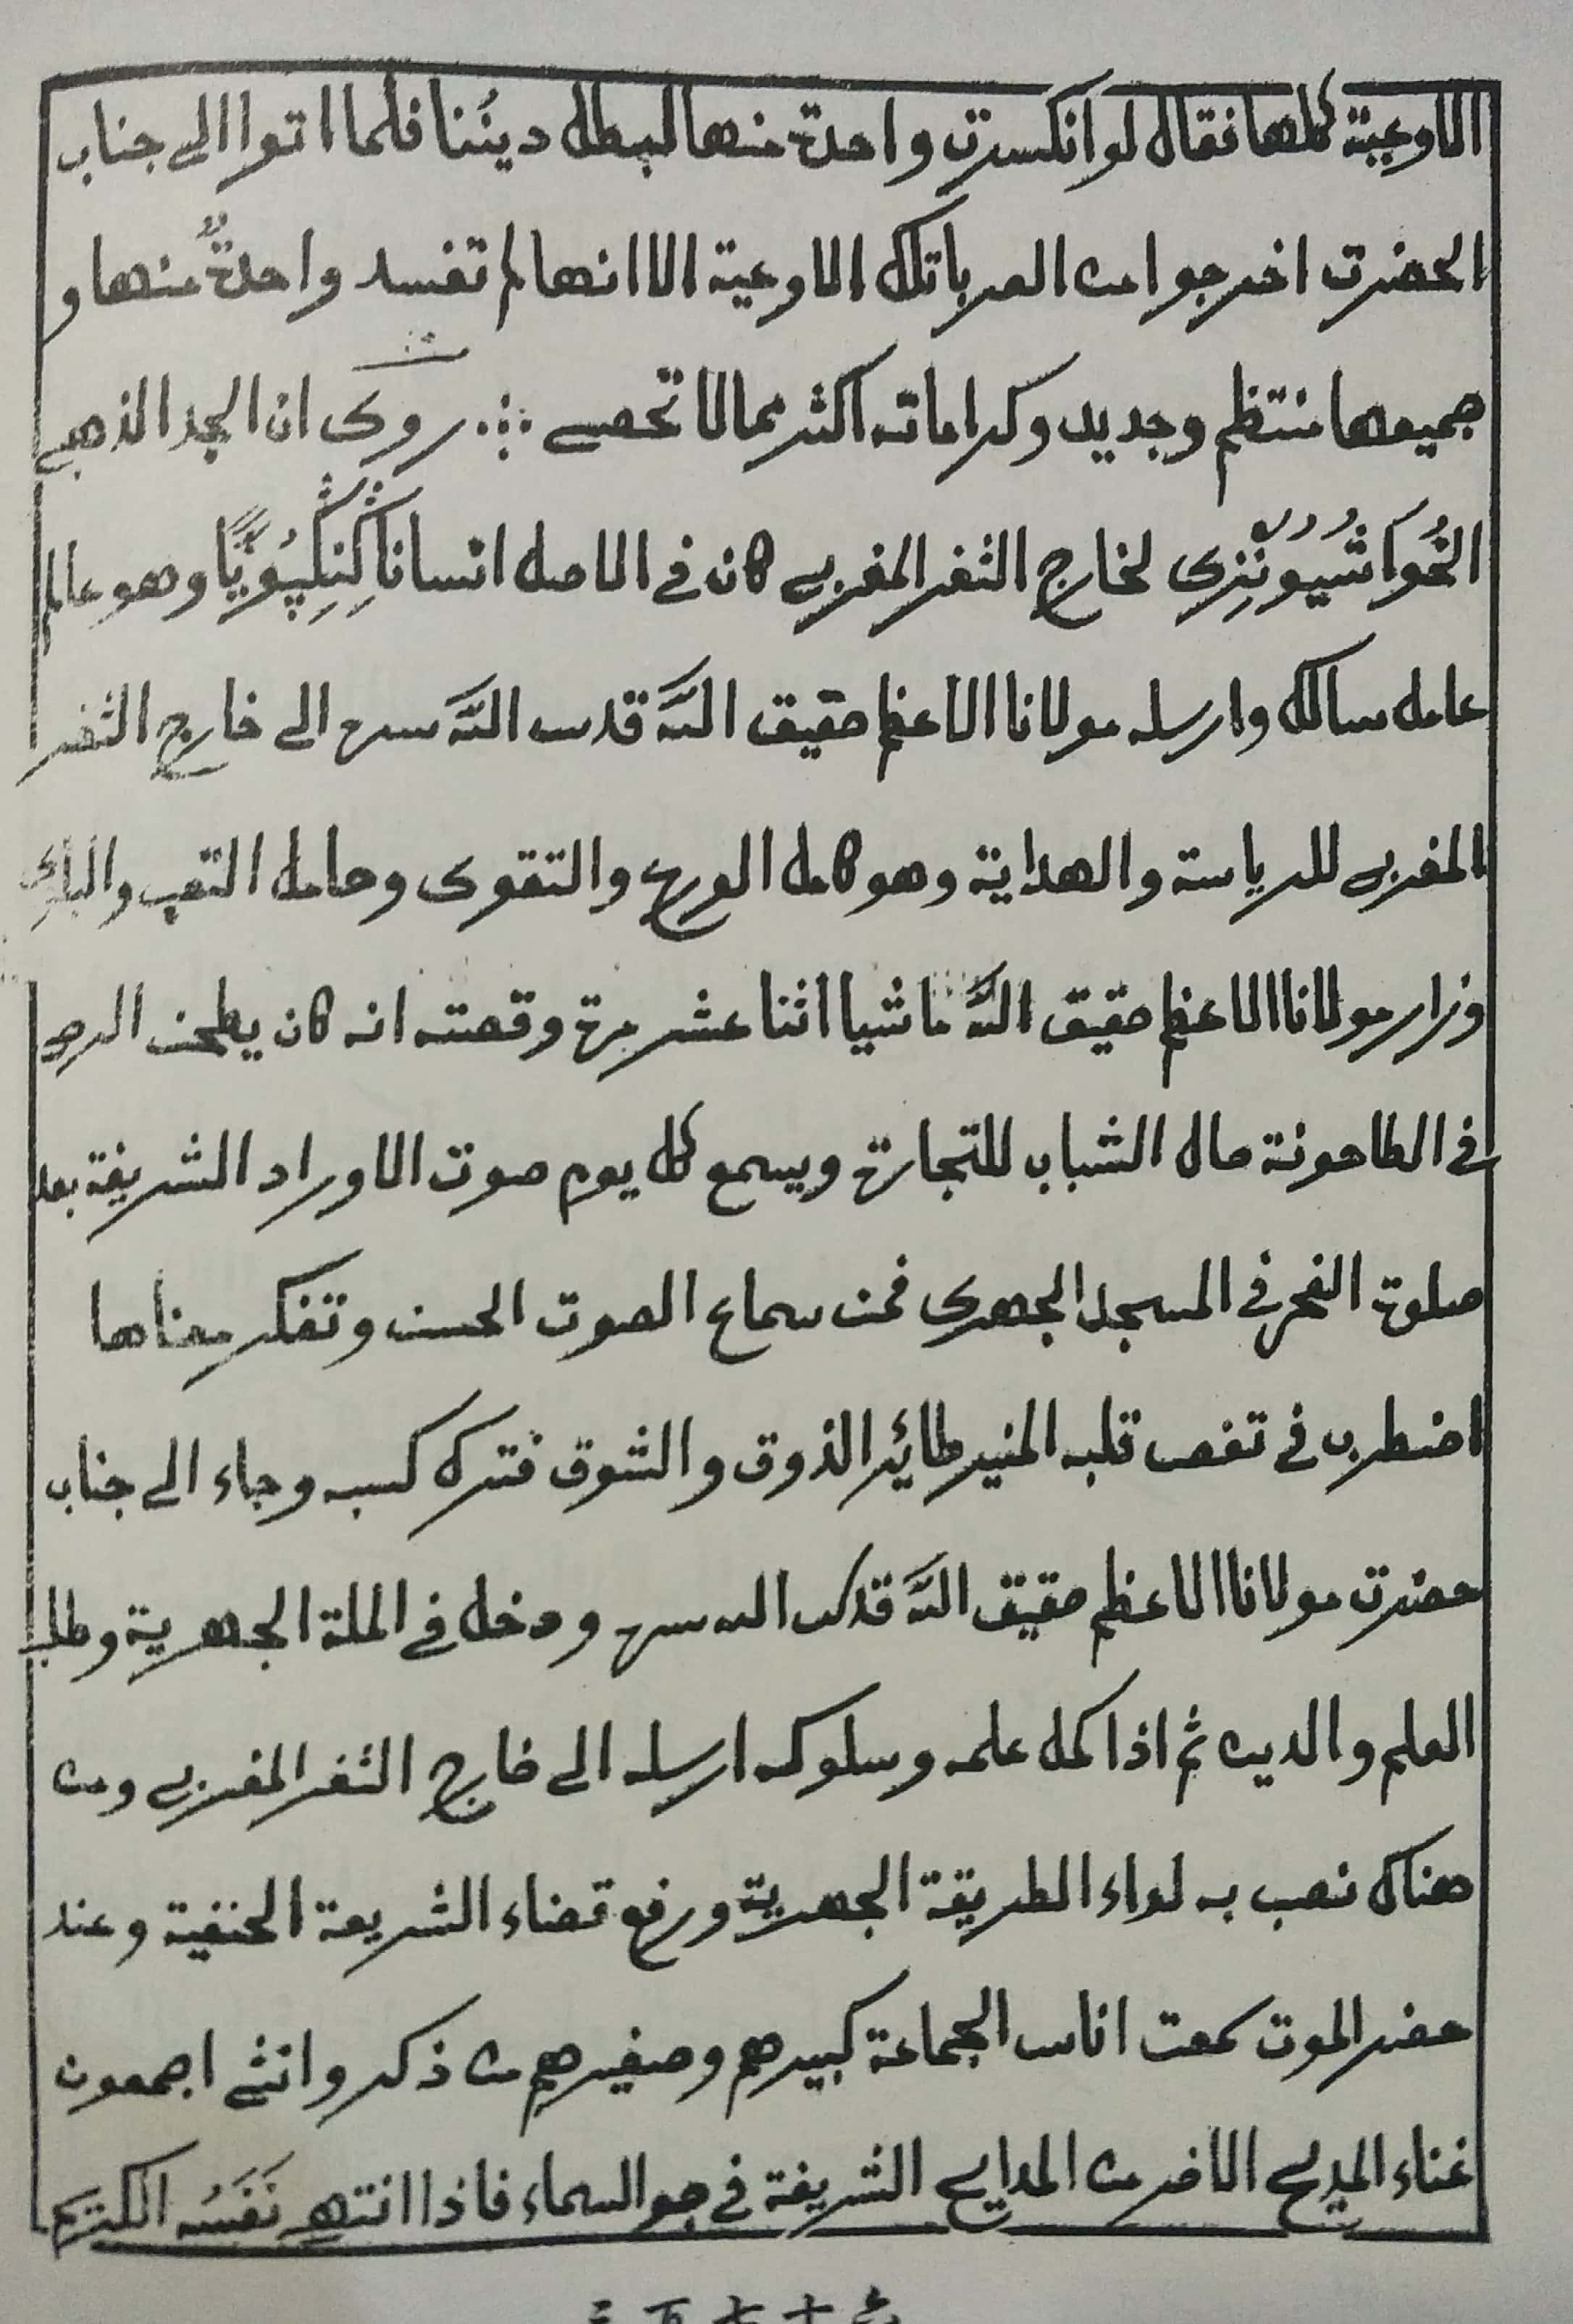 الاوعية كلها فقال لو انكسرت واحدة منها لبطل ديننا فلما اتوا الى جناب
الحضرت اخرجوا من العربا تلك الاوعية الا انها لم تفسد واحدةٌ منها و
جميعها منتظم وجديد وكراماته اكثر مما لا تحصى روى ان الجد الذهبى
لخارج الثغر المغربى كان فى الاصل انسانا وهو عالم
عامل سالك وارسله مولانا الاعظم حقيق اللّه قدس اللّه سره الى خارج الثغر
المغربى للرياسة والهداية وهو كامل الورع والتقوى وحامل التعب والبلوى
وزار مولانا الاعظم حقيق اللّه ماشيا اثنا عشر مرة وقصته انه كان يطحن
فى الطاحونة حال الشباب للتجارة ويسمع كل يوم صوت الاوراد الشريفة بعد
صلوة الفجر فى المسجد الجهرى فمن سماع الصوت الحسن وتفكر معناها
اضطرب فى تفص قلبه المنير طائر الذوق والشوق فترك كسبه وجاء الى جناب
حضرت مولانا الاعظم حقيق اللّه قدس الله سره ودخل فى الملة الجهرية وطلب
العلم والدين ثم اذا كمل علمه وسلوكه ارسله الى خارج الثغر المغربى ومن
هناك نصب به لواء الطريقة الجهرية ورفع قضاء الشريعة الحنفية وعند
حضر الموت سمعت اناس الجماعة كبيرهم وصغيرهم من ذكر وانثى اجمعون
غناء المديح الاخر من المدايح الشريفة فى جو السماء فاذا انتهى نَفَسُه الكريم